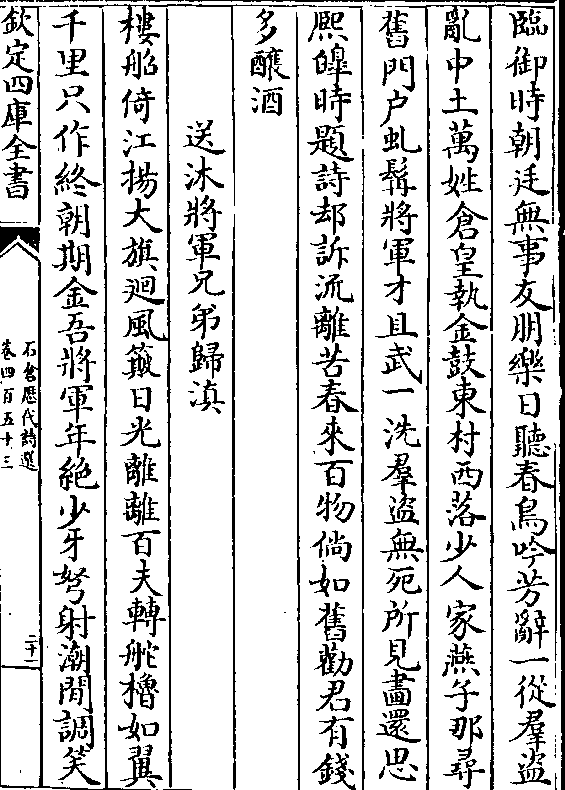 臨御時朝廷無事友朋樂日聽春鳥吟芳辭一從羣盜
亂中土萬姓倉皇執金鼓東村西落少人家燕子那尋
舊門户虬髯將軍才且武一洗羣盜無死所見畫還思
熙皥時題詩却訴流離苦春來百物倘如舊勸君有錢
多釀酒
送沐將軍兄弟歸滇
樓船倚江揚大旗迴風簸日光離離百夫轉舵櫓如翼
千里只作終朝期金吾將軍年絶少牙弩射潮閒調笑
欽定四庫全書
石倉歷代詩選
卷四百五十三
二十一